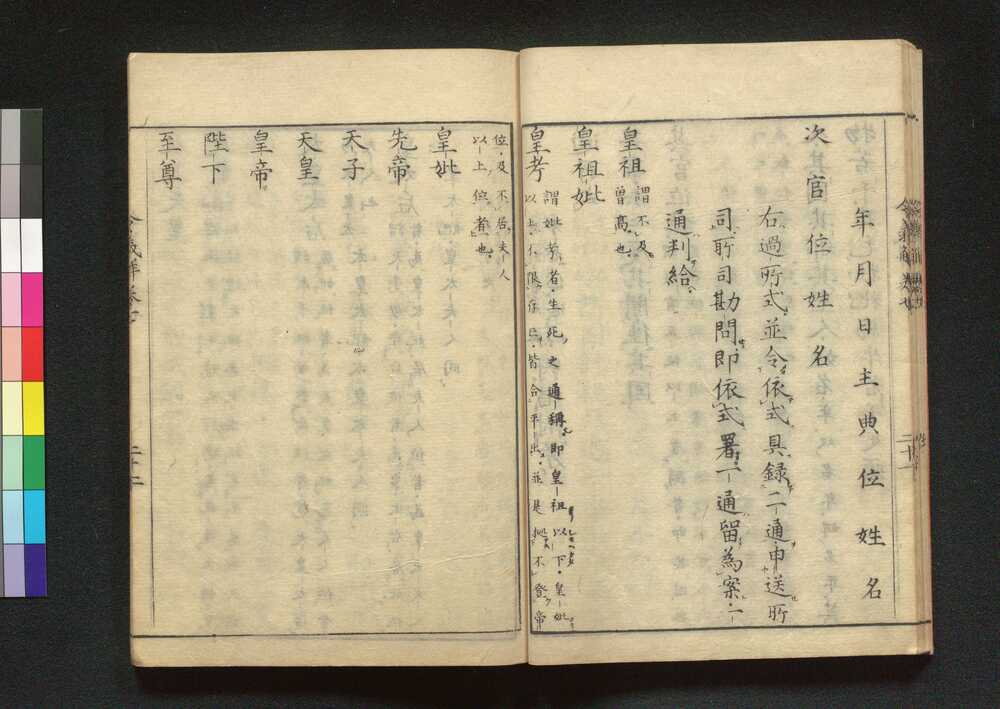 年月日主典位姓名
次官位姓名
右過所式並令依式具録二通申送所
司所司勘問即依式署一通留為案一
通判給
皇祖 謂不及
曽高也
皇祖妣
皇考 謂妣考者生死之通称即皇祖以下皇妣
以上不限存亡皆合平出並是拠不登帝
位及不居夫人
以上位者也
皇妣
先帝
天子
天皇
皇帝
陛下
至尊